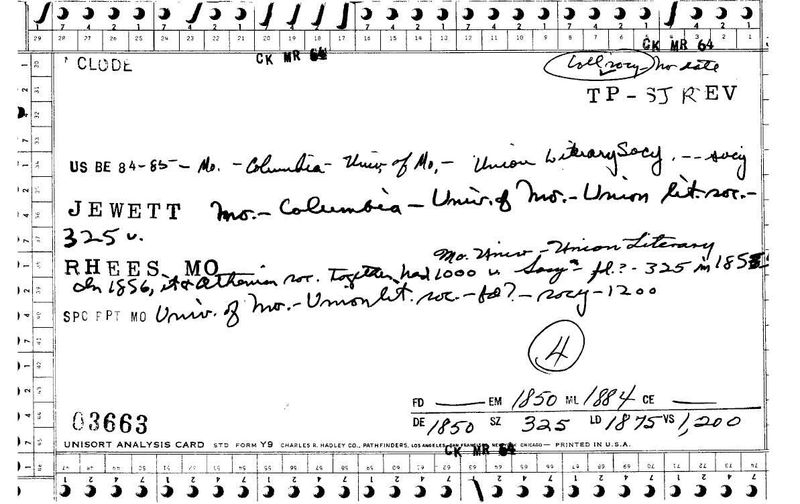 CK MR 64
CK MR 64
CLODE
Coll socy - no date
TP - SJ REV
US BE 84-85 - Mo. - Columbia - Univ. of Mo. - Union Literary Socy. - - - socy
JEWETT Mo. - Columbia - Univ. of Mo. - Union lit. soc. -
325 v.
Mo. Univ - Union Literary
RHEES MO Socy - fd.? - 325 in 185
In 1856, it & Athenian soc. together had 1000 v.
SPC FPT MO Univ. of Mo. - Union lit. soc. - fd? - socy - 1200
4
FD EM 1850 ML 1884 CE
DE 1850 SZ 325 LD 1875 VS 1,200
03663
UNISORT ANALYSIS CARD STD FORM Y9 CHARLES R. HADLEY CO., PATHFINDERS, LOS ANGELES, SAN FRANCISCO, NEW YORK, CHICAGO — PRINTED IN U.S.A.
CK MR 64